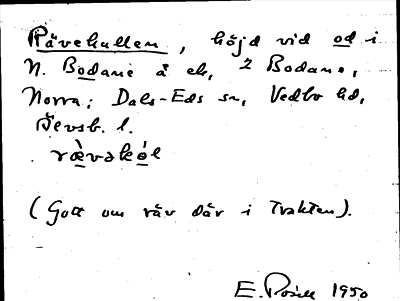 Rävekullen, höjd vid od i
N. Bodane å ek. 2 Bodane,
Norra; Dals-Eds sn, Vedbo hd,
Älvsb. l.
rævəkòl
(Gott om räv där i trakten).
E. Rosell 1950